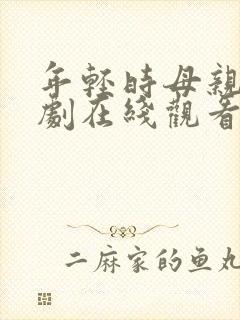 年轻时母亲
劇在綫觀看
二麻家的鱼丸